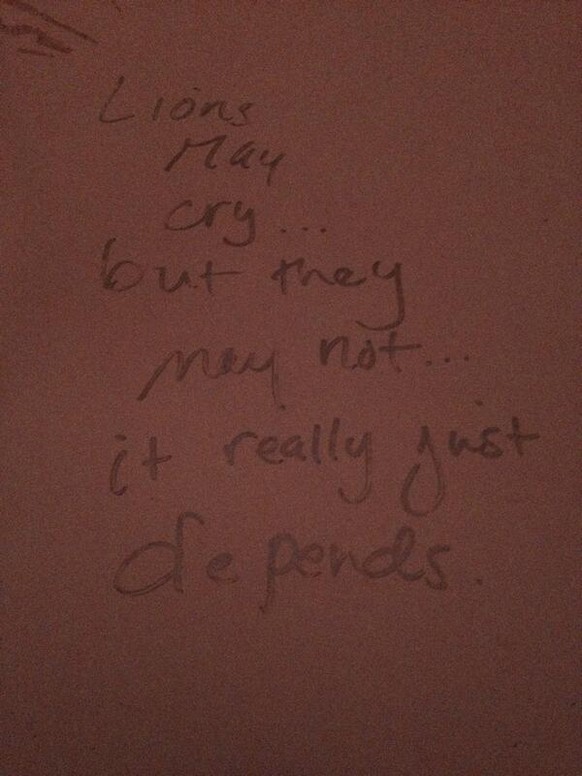 Lions
May
cry...
but they
may not...
it really just
depends.